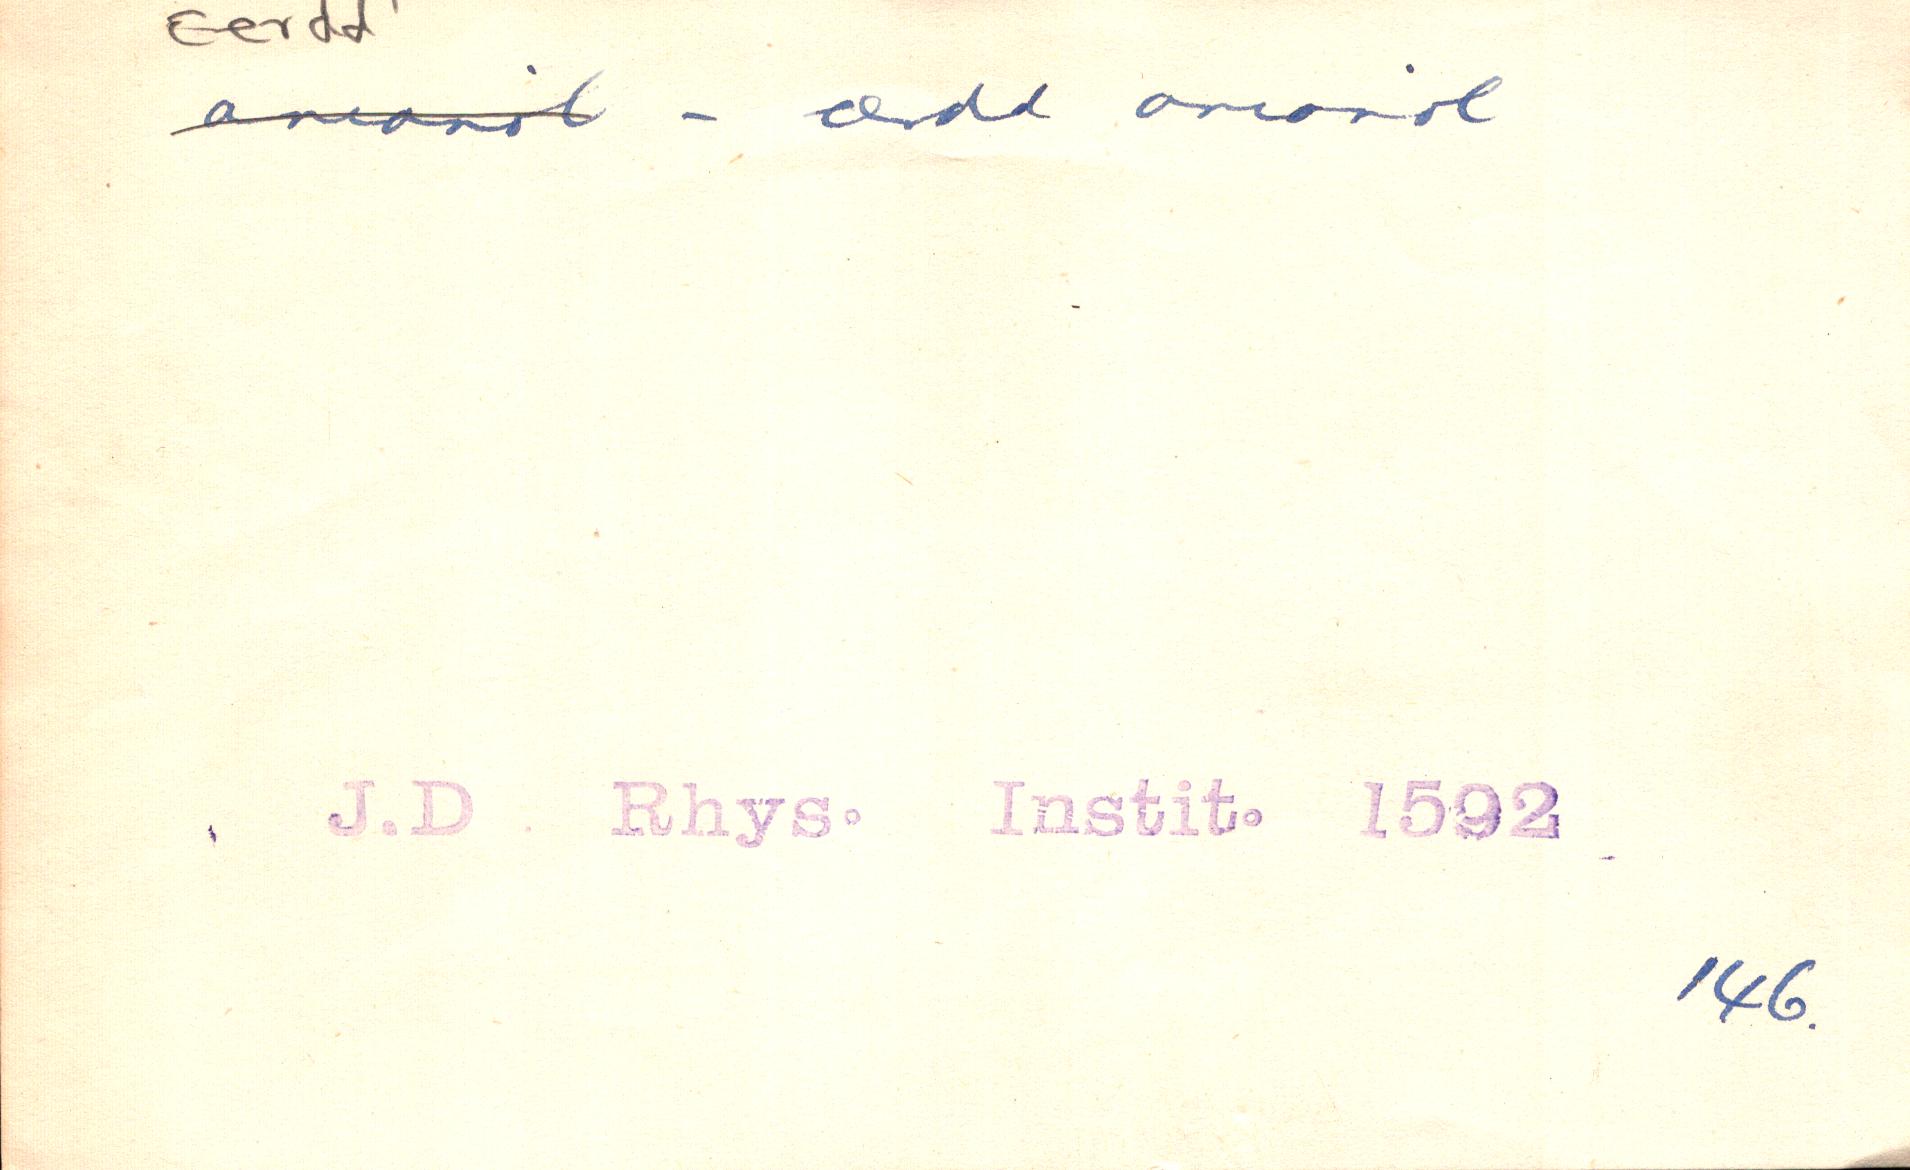 cerdd'
anianol - cerdd anianol
J.D. Rhys. Instit. 1592
146.